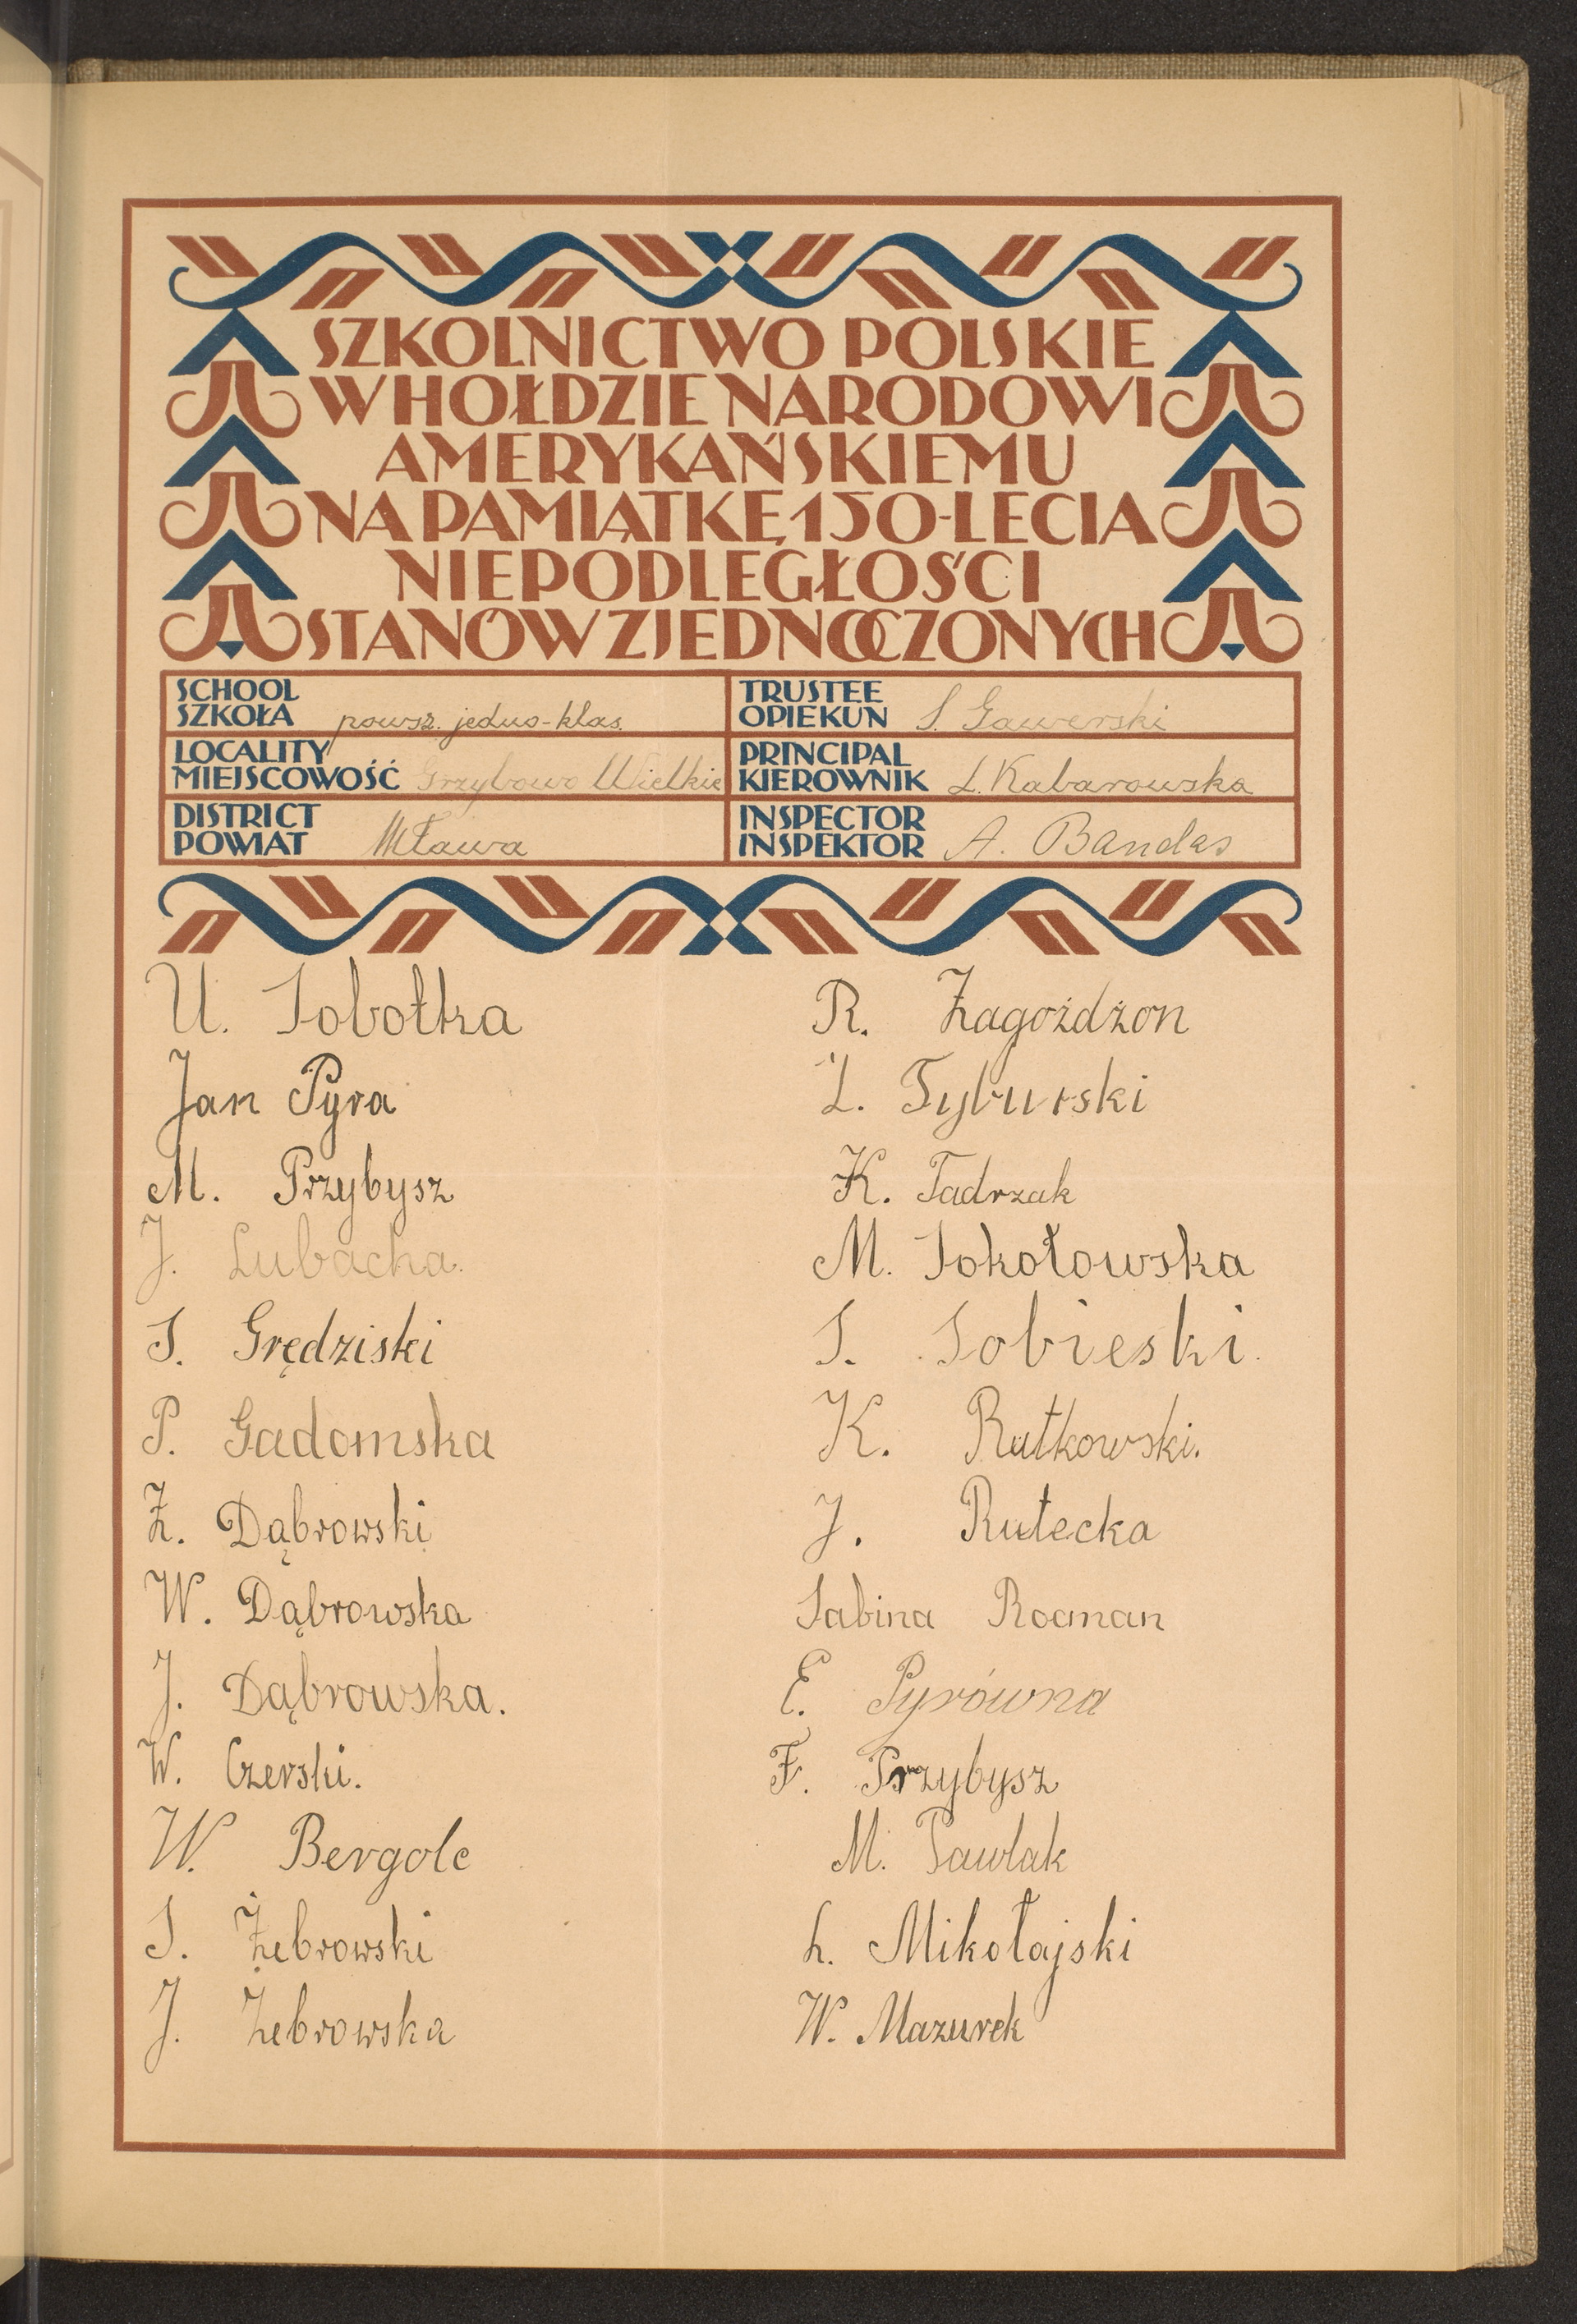 SZKOLNICTWO POLSKIE
W HOŁDZIE NARODOWI
AMERYKAŃSKIEMU
NA PAMIĄTKĘ 150-LECIA
NIEPODLEGŁOŚCI
STANÓW ZJEDNOCZONYCH
SCHOOL
SZKOŁA powsz. jedno-klas.
LOCALITY
MIEJSCOWOŚĆ Grzybowo Wielkie
DISTRICT
POWIAT Mława
TRUSTEE
OPIEKUN S. Gawerski
PRINCIPAL
KIEROWNIK L. Kabarowska
INSPECTOR
INSPEKTOR A. Bandas
U. Sobotka
Jan Pyra
M. Przybysz
J. Lubacha.
S. Grędziski
P. Gadomska
Z. Dąbrowski
W. Dąbrowska
J. Dąbrowska.
W. Czerski.
W. Bergolc
S. Żebrowski
J. Żebrowska
R. Zagożdżon
L. Tyburski
K. Tadrzak
M. Sokołowska
S. Sobieski.
K. Rutkowski.
J. Rutecka
Sabina Rocman
E. Pyrówna
F. Przybysz
M. Pawlak
L. Mikołajski
W. Mazurek